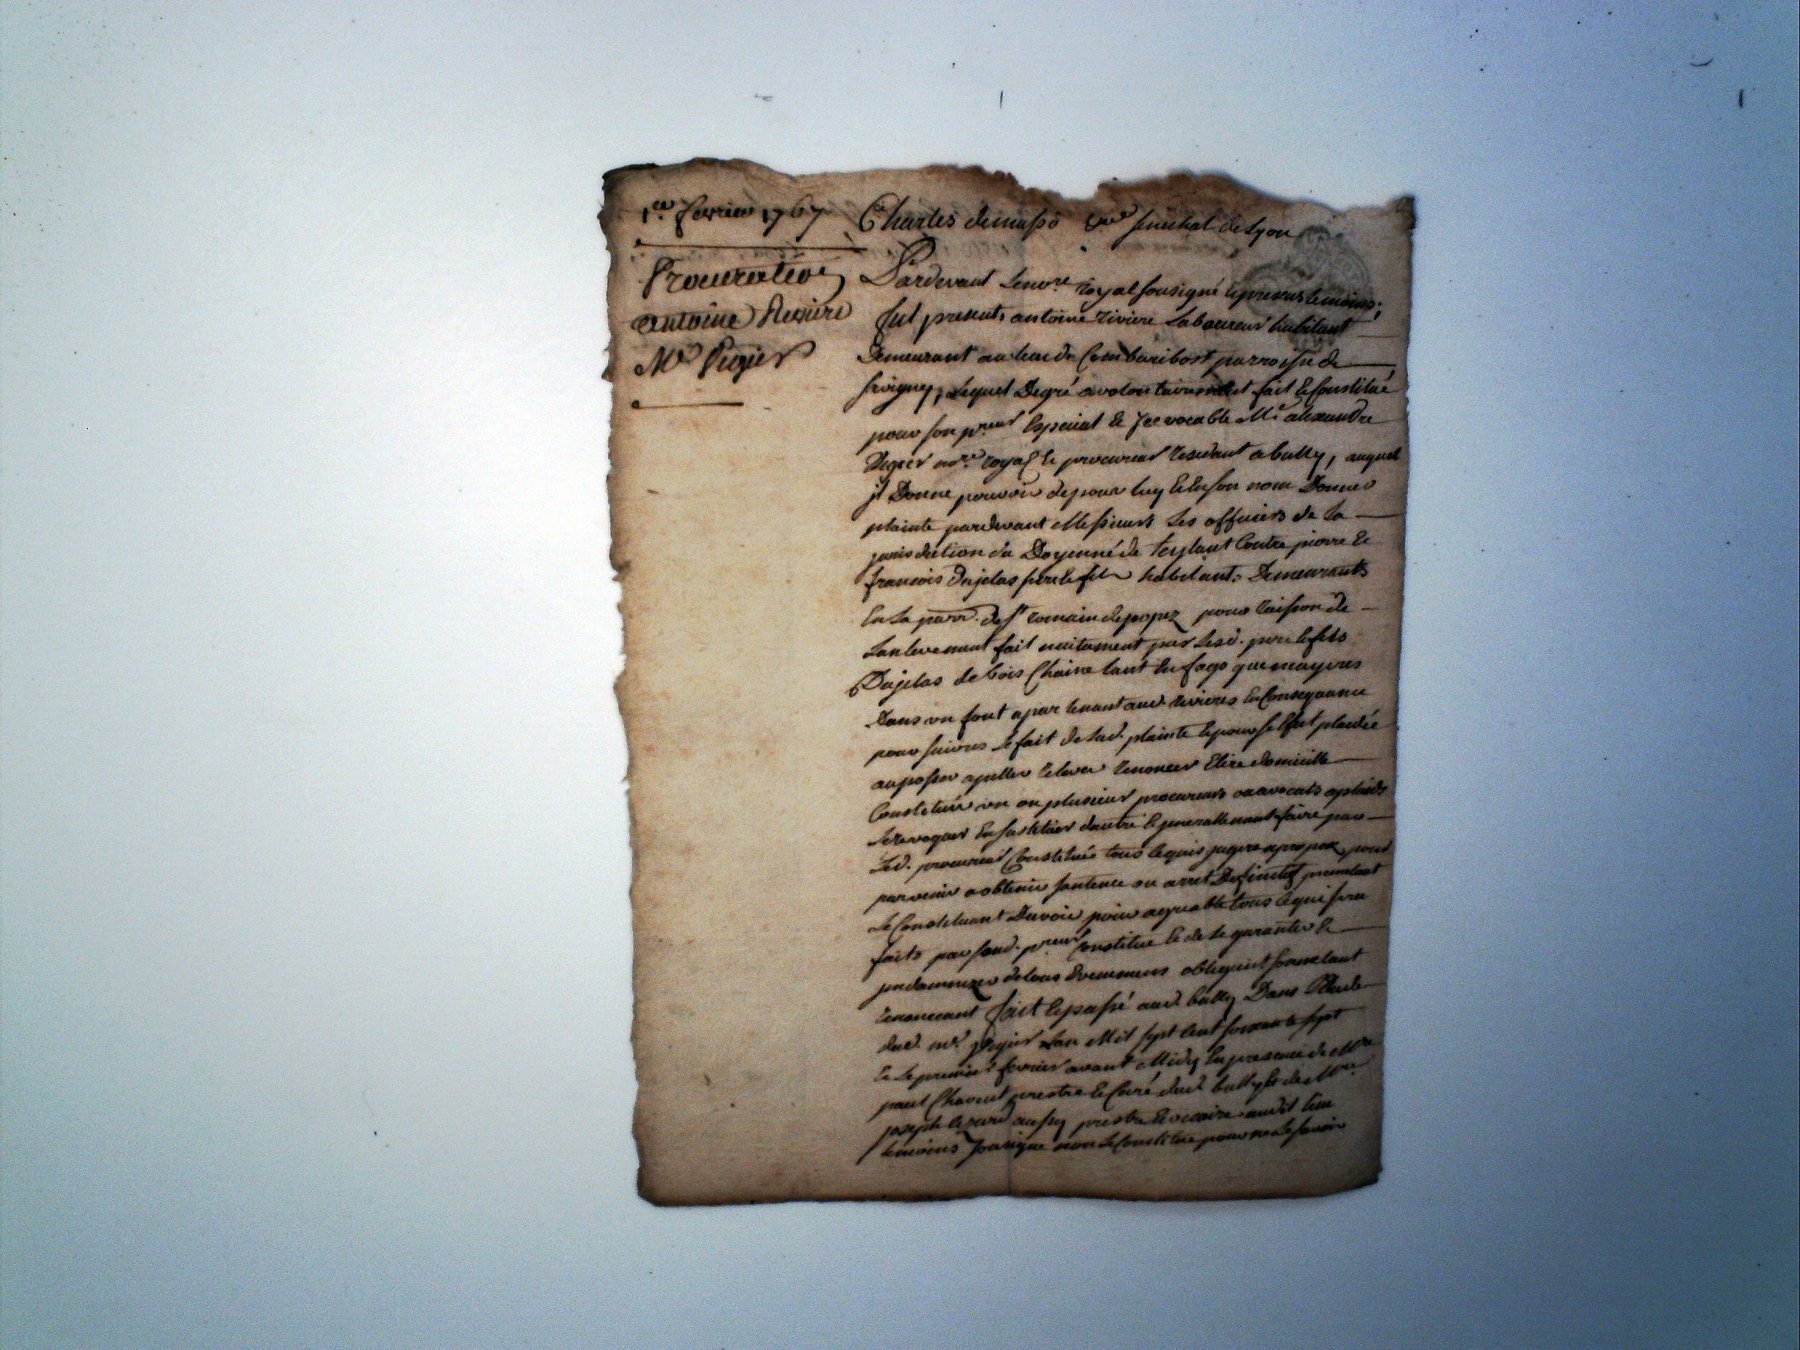 1er fevrier 1767
Procuration
antoine Riviere
Me Pugier
Charles demasso senechal de Lyon
Pardevant Le nore royal sousigné & presents temoins;
fut present antoine riviere Laboureur habitant
Demeurant au lieu de Combaribost parroisse de
Sevigney, Lequel De gré a volontairement fait & Constitué
pour son preur special & jrrevocable Me alexandre
nore royal & procureur residant a bully, auquel
jl Donne pouvoir de pour luy & En son nom Donner
plainte pardevant Messieurs Les officiers de La
jurisdiction du Doyenné de Teylant Contre pierre &
francois Dujelas pere & fils habitants Demeurants
En La parr. de St romain de popez pour raison de
Lanlevement fait nuitament par Lesd. pere & fils
Dujelas de bois Chaine tant En fago que mayeres
Dans un font apartenant aud. riviere En Consequance
poursuivre Le fait de Lad. plainte & pour se fait plaider
oposser apeller relever renoncer Elire domicille
Constituer un ou plusieur procureurs ou avocats
revoquer En sustituer dautre & generallement faire par
Led. procureur Constitué tous ce quis jugera apropos pour
parvenir a obtenir santence ou arret Definitif promettant
Le Constituant Davoir pour agreable tous ce qui sera
faits par sond. preur Constitué & de Le garantir &
jndamnizer de tous Evenement obligeant soumetant
renoncant fait & passé aud. bully Dans L'Etude
dud. me Lan Mil sept Cent soixante sept
& Le premier fevrier avant Midy En presence de Mre
paul Chavent prestre & Curé dud. bully & de Mre
joseph aussy prestre & vicaire audit Lieu
temoins sousigné non Le Constituant pour ne Le savoir